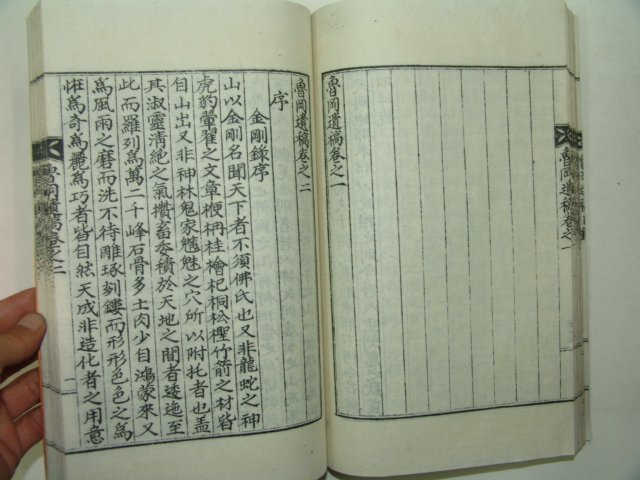 魯岡遺稿卷之一
魯岡遺稿卷之一
魯岡遺稿卷之二
序
金剛錄序
山以金剛名聞天下者不須佛氏也又非龍蛇之神
虎豹翬翟之文章楩柟桂檜杞桐松樫竹箭之材皆
自山出又非神林鬼家魑魅之穴所以附托者也盖
其淑靈淸絶之氣積畜委積於天地之間者逶迤至
此而羅列爲萬二千峰石骨多土肉少自鴻蒙來又
爲風雨之磨而洗不待雕琢刻鏤而形形色色之爲
恠爲奇爲麗爲巧者皆自然天成非造化者之用意
魯岡遺稿卷之二
一